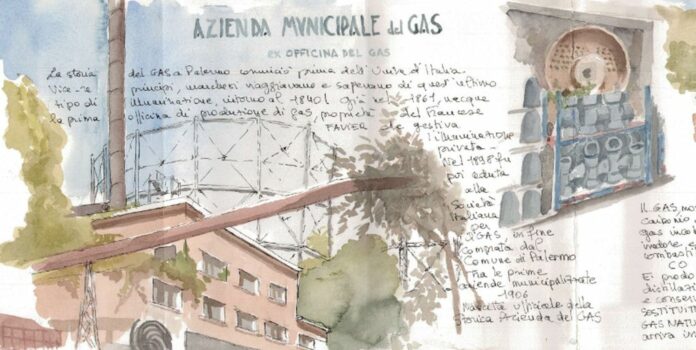 AZIENDA MUNICIPALE del GAS
EX OFFICINA DEL GAS
La storia del GAS a Palermo cominciò prima dell'Unità d'Italia
Vice-re principi, marchesi viaggiavano e sapevano di quest'ultimo
tipo di illuminazione, intorno al 1840! Già nel 1861, nacque
la prima officina di produzione di gas, proprietà del francese
FAVIER che gestiva
l'illuminazione
privata
Nel 1898 fu
poi ceduta
alla
Società
Italiana
per
il GAS, infine
comprata dal
Comune di Palermo
Tra le prime
aziende municipalizzate
1906
Mascotte ufficiale della
storica Azienda del GAS
Il GAS, mon
carbonio
gas incol
combusti
CO
È prodo
distillazi
e conser
SOSTITUIT
GAS NATU
arriva in